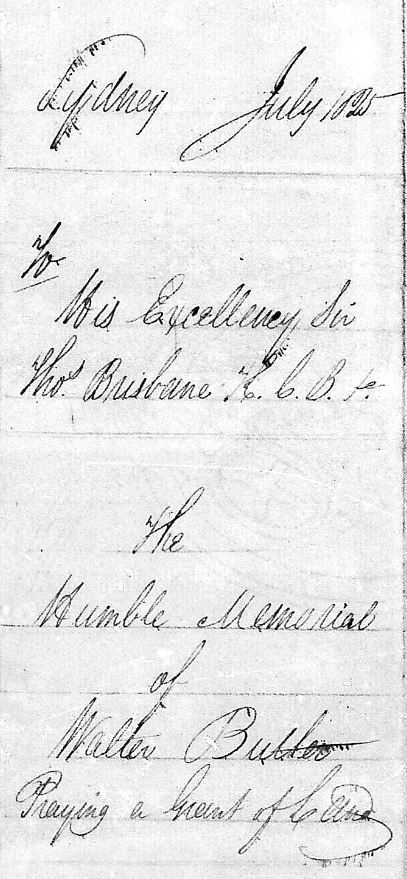 Sydney July 1825
To
His Excellency Sir
Thos. Brisbane K. C. B. &c.
The
Humble Memorial
of
Walter Butler
Praying a Grant of Land